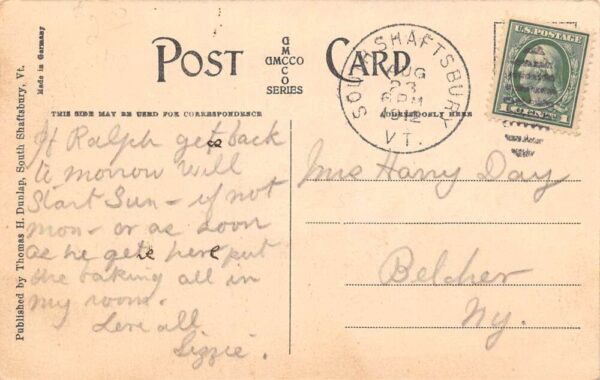 POST CARD
G
M
GMCCO
C
O
SERIES
THIS SIDE MAY BE USED FOR CORRESPONDENCE
ADDRESS ONLY HERE
Made in Germany
Published by Thomas H. Dunlap, South Shaftsbury, Vt.
SOUTH SHAFTSBURY
AUG
23
6 PM
1912
VT.
U.S. POSTAGE
1 CENT 1
If Ralph gets back
to morrow will
start Sun - if not
mon - or as soon
as he gets here put
the baking all in
my room.
Love all
Lizzie.
Mrs Harry Day
Belcher
Ny.